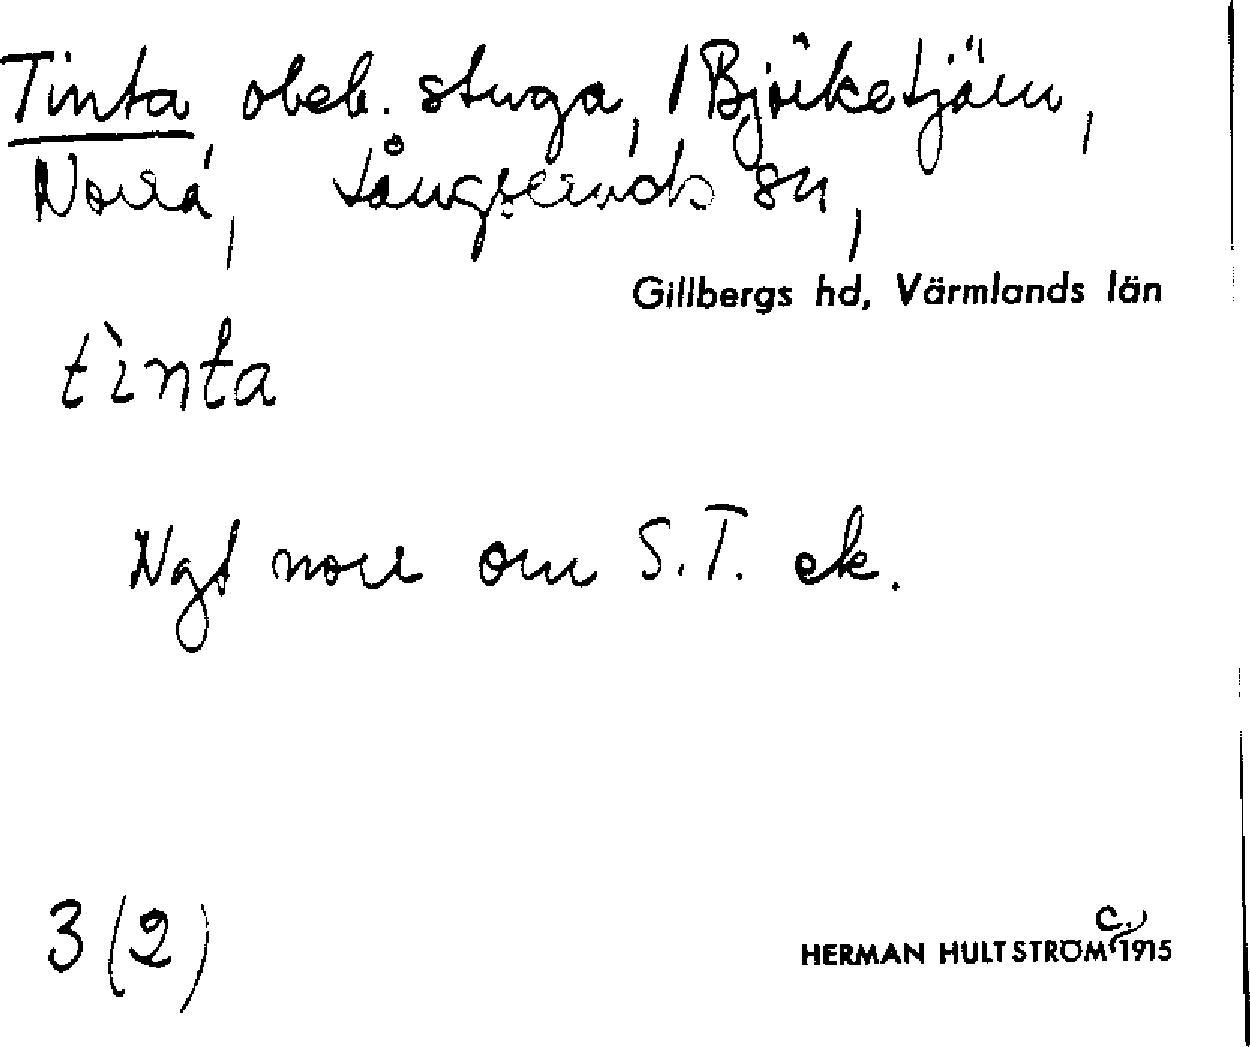 Tinta obeb. stuga, /Björketjärn,
Norra, Långseruds sn,
Gillbergs hd, Värmlands län
tìnta
Ngt norr om S.T. ek.
3 (2)
HERMAN HULTSTRÖM c. 1915